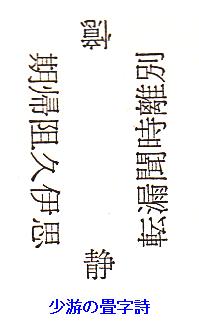 静
思伊久阻帰期
憶
別離時聞漏転
少游の畳字詩